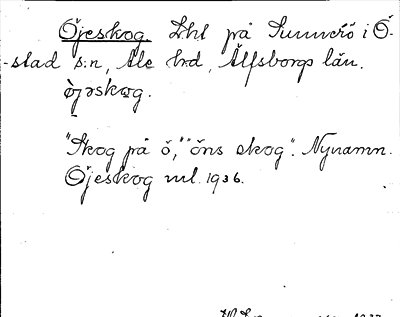 Öjeskog. Lht på Sunnerö i Ö-
-stad s:n, Ale hrd, Älfsborgs län.
òjəskɷg.
"Skog på ö," "öns skog". Nynamn.
Öjeskog ml. 1936.